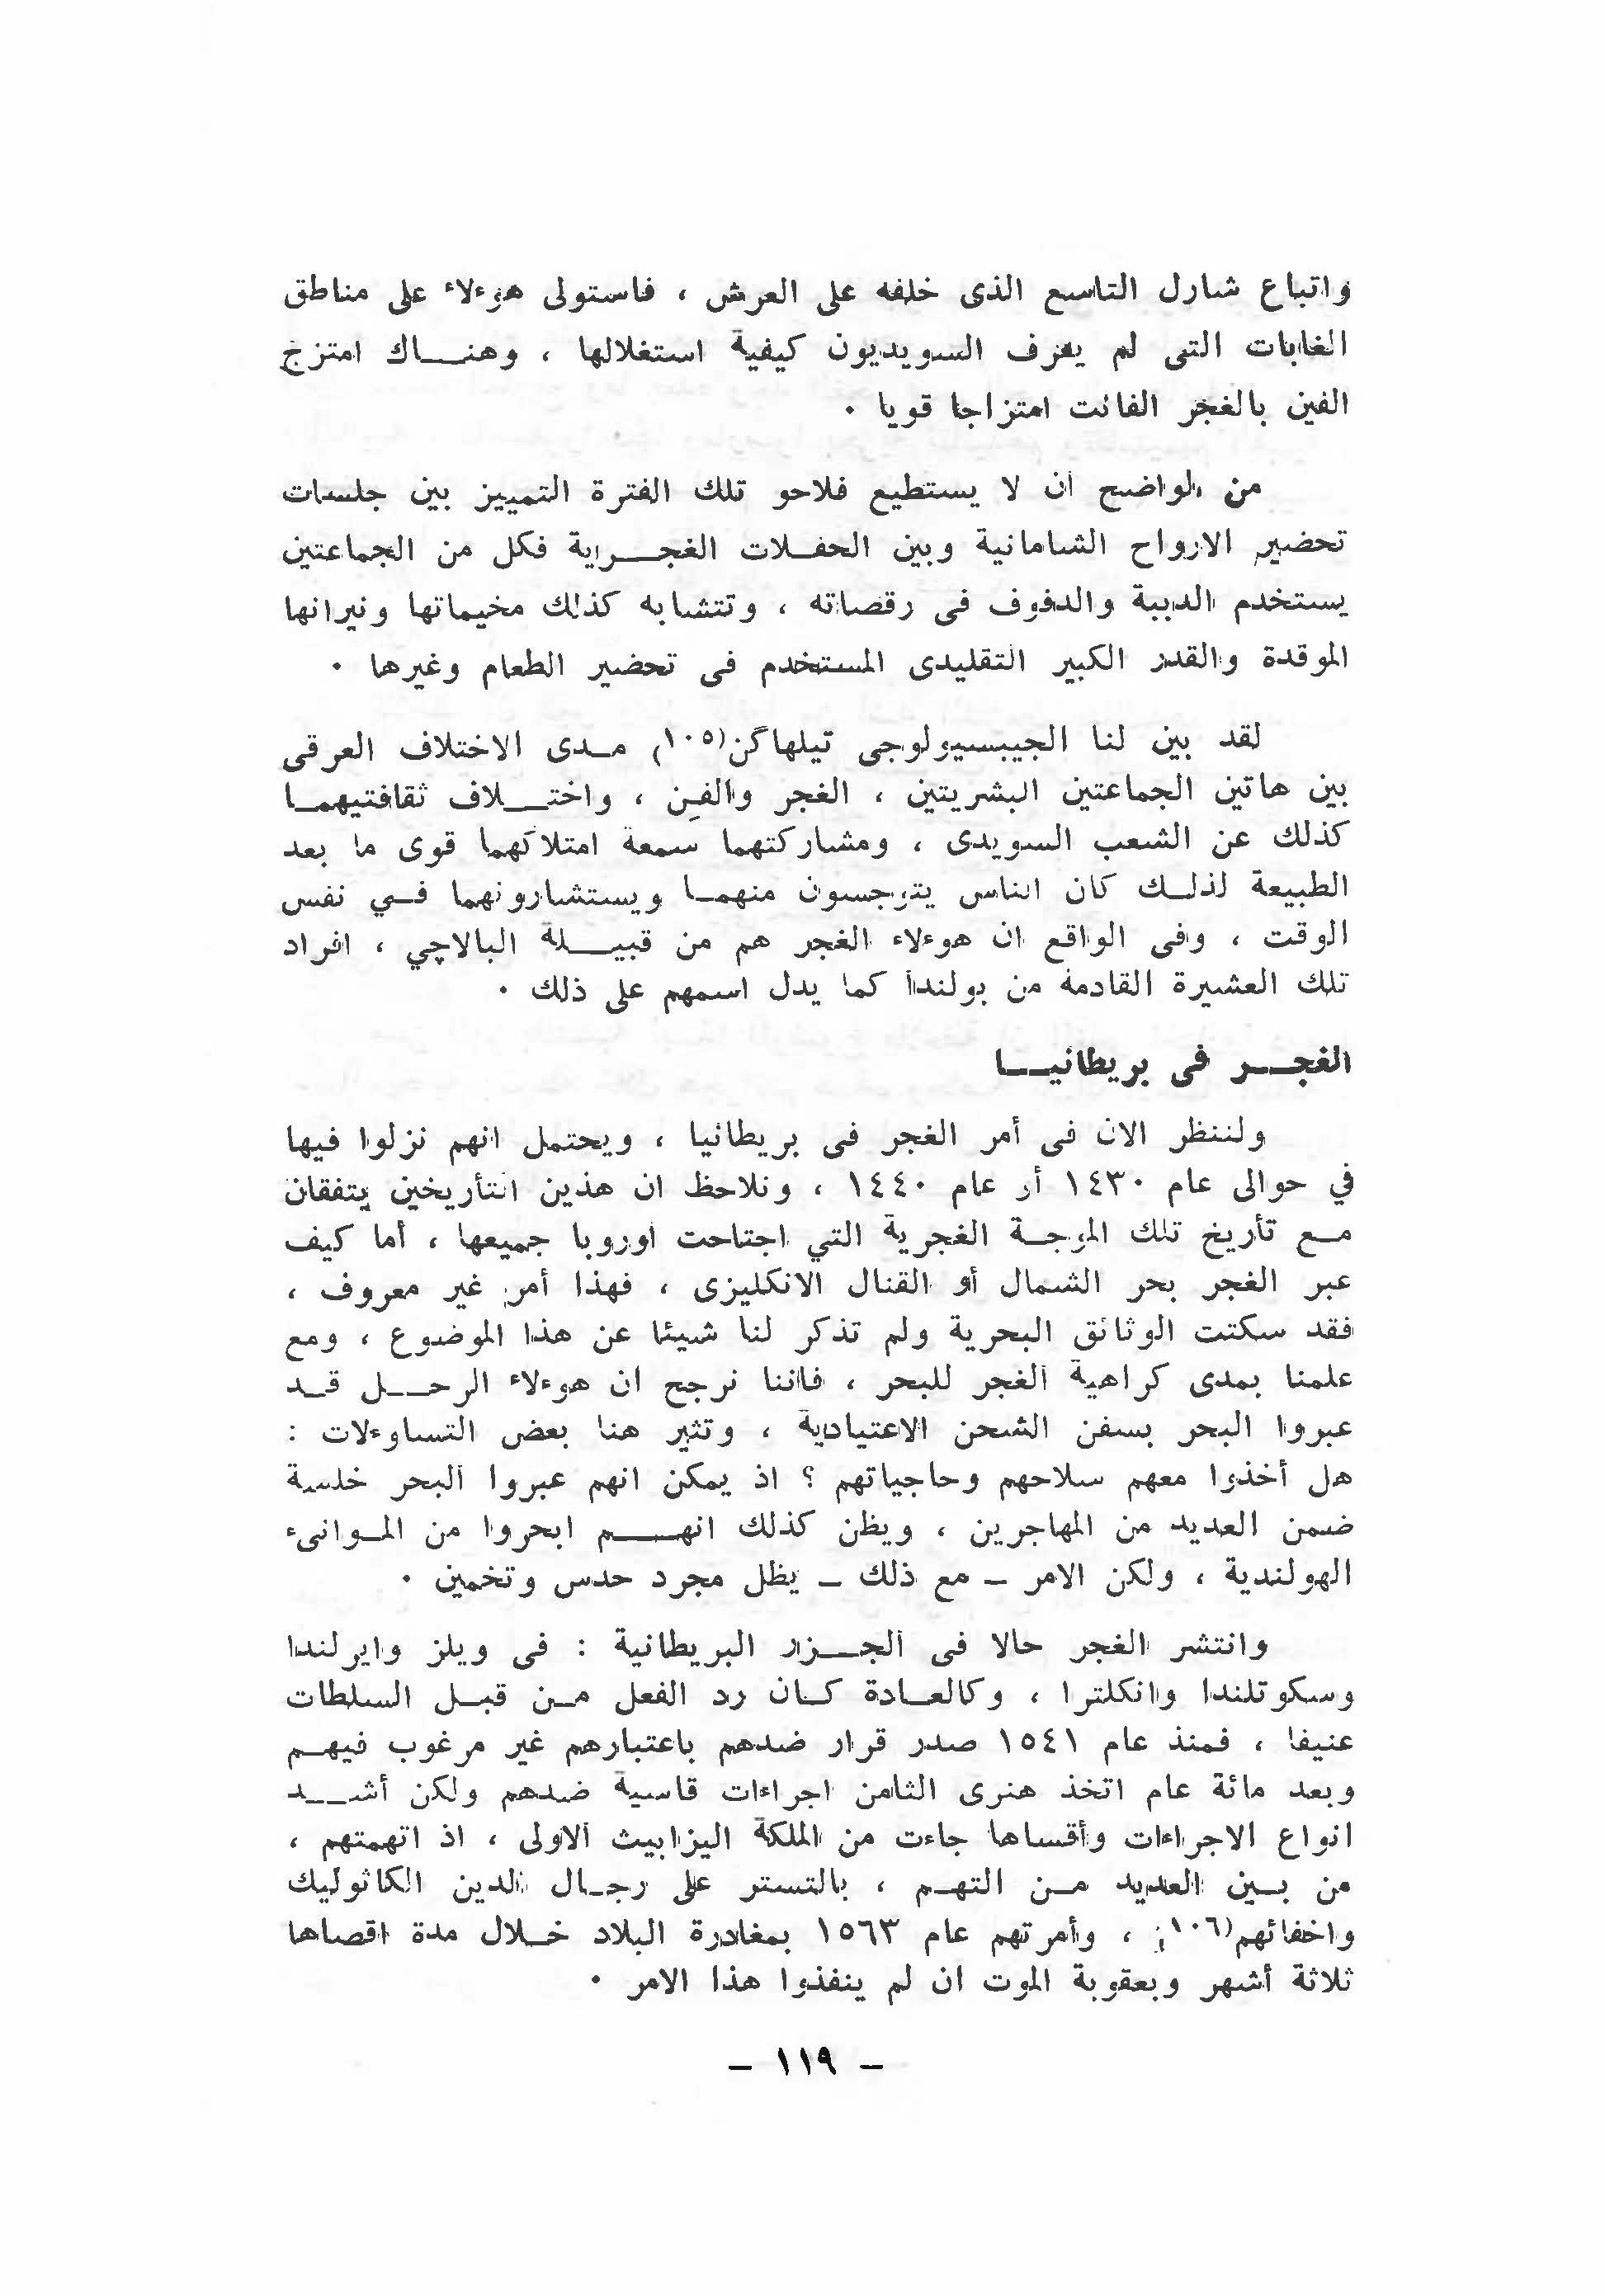 واتباع شارل التاسع الذى خلفه على العرش ، فاستولى هوءلاء على مناطق
الغابات التى لم يعرف السويديون كيفية استغلالها ، وهنـــاك امتزج
الفين بالغجر الفانت امتزاجا قويا ٠
من الواضح ان لا يستطيع فلاحو تلك الفترة التمييز بين جلسات
تحضير الارواح الشامانية وبين الحفـلات الغجـــراية فكل من الجماعتين
يستخدم الدببة والدفوف فى رقصاته ، وتتشابه كذلك مخيماتها ونيرانها
الموقدة والقدر الكبير التقليدى المستخدم فى تحضير الطعام وغيرها ٠
لقد بين لنا الجيبسيولوجى تيلهاگن(١٠٥) مـدى الاختلاف العرقى
بين هاتين الجماعتين البشريتين ، الغجر والفـن ، واختـــلاف ثقافتيهمـا
كذلك عن الشعب السويدى ، ومشاركتهما سمعة امتلاكهما قوى ما بعد
الطبيعة لذلـك كان الناس يتوجسون منهمـا ويستشارونهما فـي نفس
الوقت ، وفى الواقع ان هوءلاء الغجر هم من قبيـــلة البالاچي ، افراد
تلك العشيرة القادمة من بولندا كما يدل اسمهم على ذلك ٠
الغجـــر فى بريطانيـــا
ولننظر الان فى أمر الغجر فى بريطانيا ، ويحتمل انهم نزلوا فيها
في حوالى عام ١٤٣٠ أر عام ١٤٤٠ ، ونلاحظ ان هذين التأريخين يتفقان
مـع تأريخ تلك الموجـة الغجرية التي اجتاحت اوروبا جميعها ، أما كيف
عبر الغجر بحر الشمال أو القنال الانكليزى ، فهذا أمر غير معروف ،
فقد سكتت الوثائق البحرية ولم تذكر لنا شيئا عن هذا الموضوع ، ومع
علمنا بمدى كراهية الغجر للبحر ، فاننا نرجح ان هوءلاء الرحـــل قـد
عبروا البحر بسفن الشحن الاعتيادية ، وتثير هنا بعض التساوءلات :
هل أخذوا معهم سلاحهم وحاجياتهم ؟ اذ يمكن انهم عبروا البحر خلسة
ضمن العديد من المهاجرين ، ويظن كذلك انهـــم ابحروا من المـوانىء
الهولندية ، ولكن الامر ــ مع ذلك ــ يظل مجرد حدس وتخمين ٠
وانتشر الغجر حالا فى الجـــزر البريطانية : فى ويلز وايرلندا
وسكوتلندا وانكلترا ، وكالعـادة كـان رد الفعل مـن قبـل السلطات
عنيفا ، فمنذ عام ١٥٤١ صدر قرار ضدهم باعتبارهم غير مرغوب فيهـم
وبعد مائة عام اتخذ هنرى الثامن اجراءات قاسية ضدهم ولكن أشـــد
انواع الاجراءات وأقساها جاءت من الملكة اليزابيث الاولى ، اذ اتهمتهم ،
من بـين العديد مـن التهـم ، بالتستر على رجـال الدين الكاثوليك
واخفائهم(١٠٦) ، وأمرتهم عام ١٥٦٣ بمغادرة البلاد خـلال مدة اقصاها
ثلاثة أشهر وبعقوبة الموت ان لم ينفذوا هذا الامر ٠
ــ ١١٩ ــ